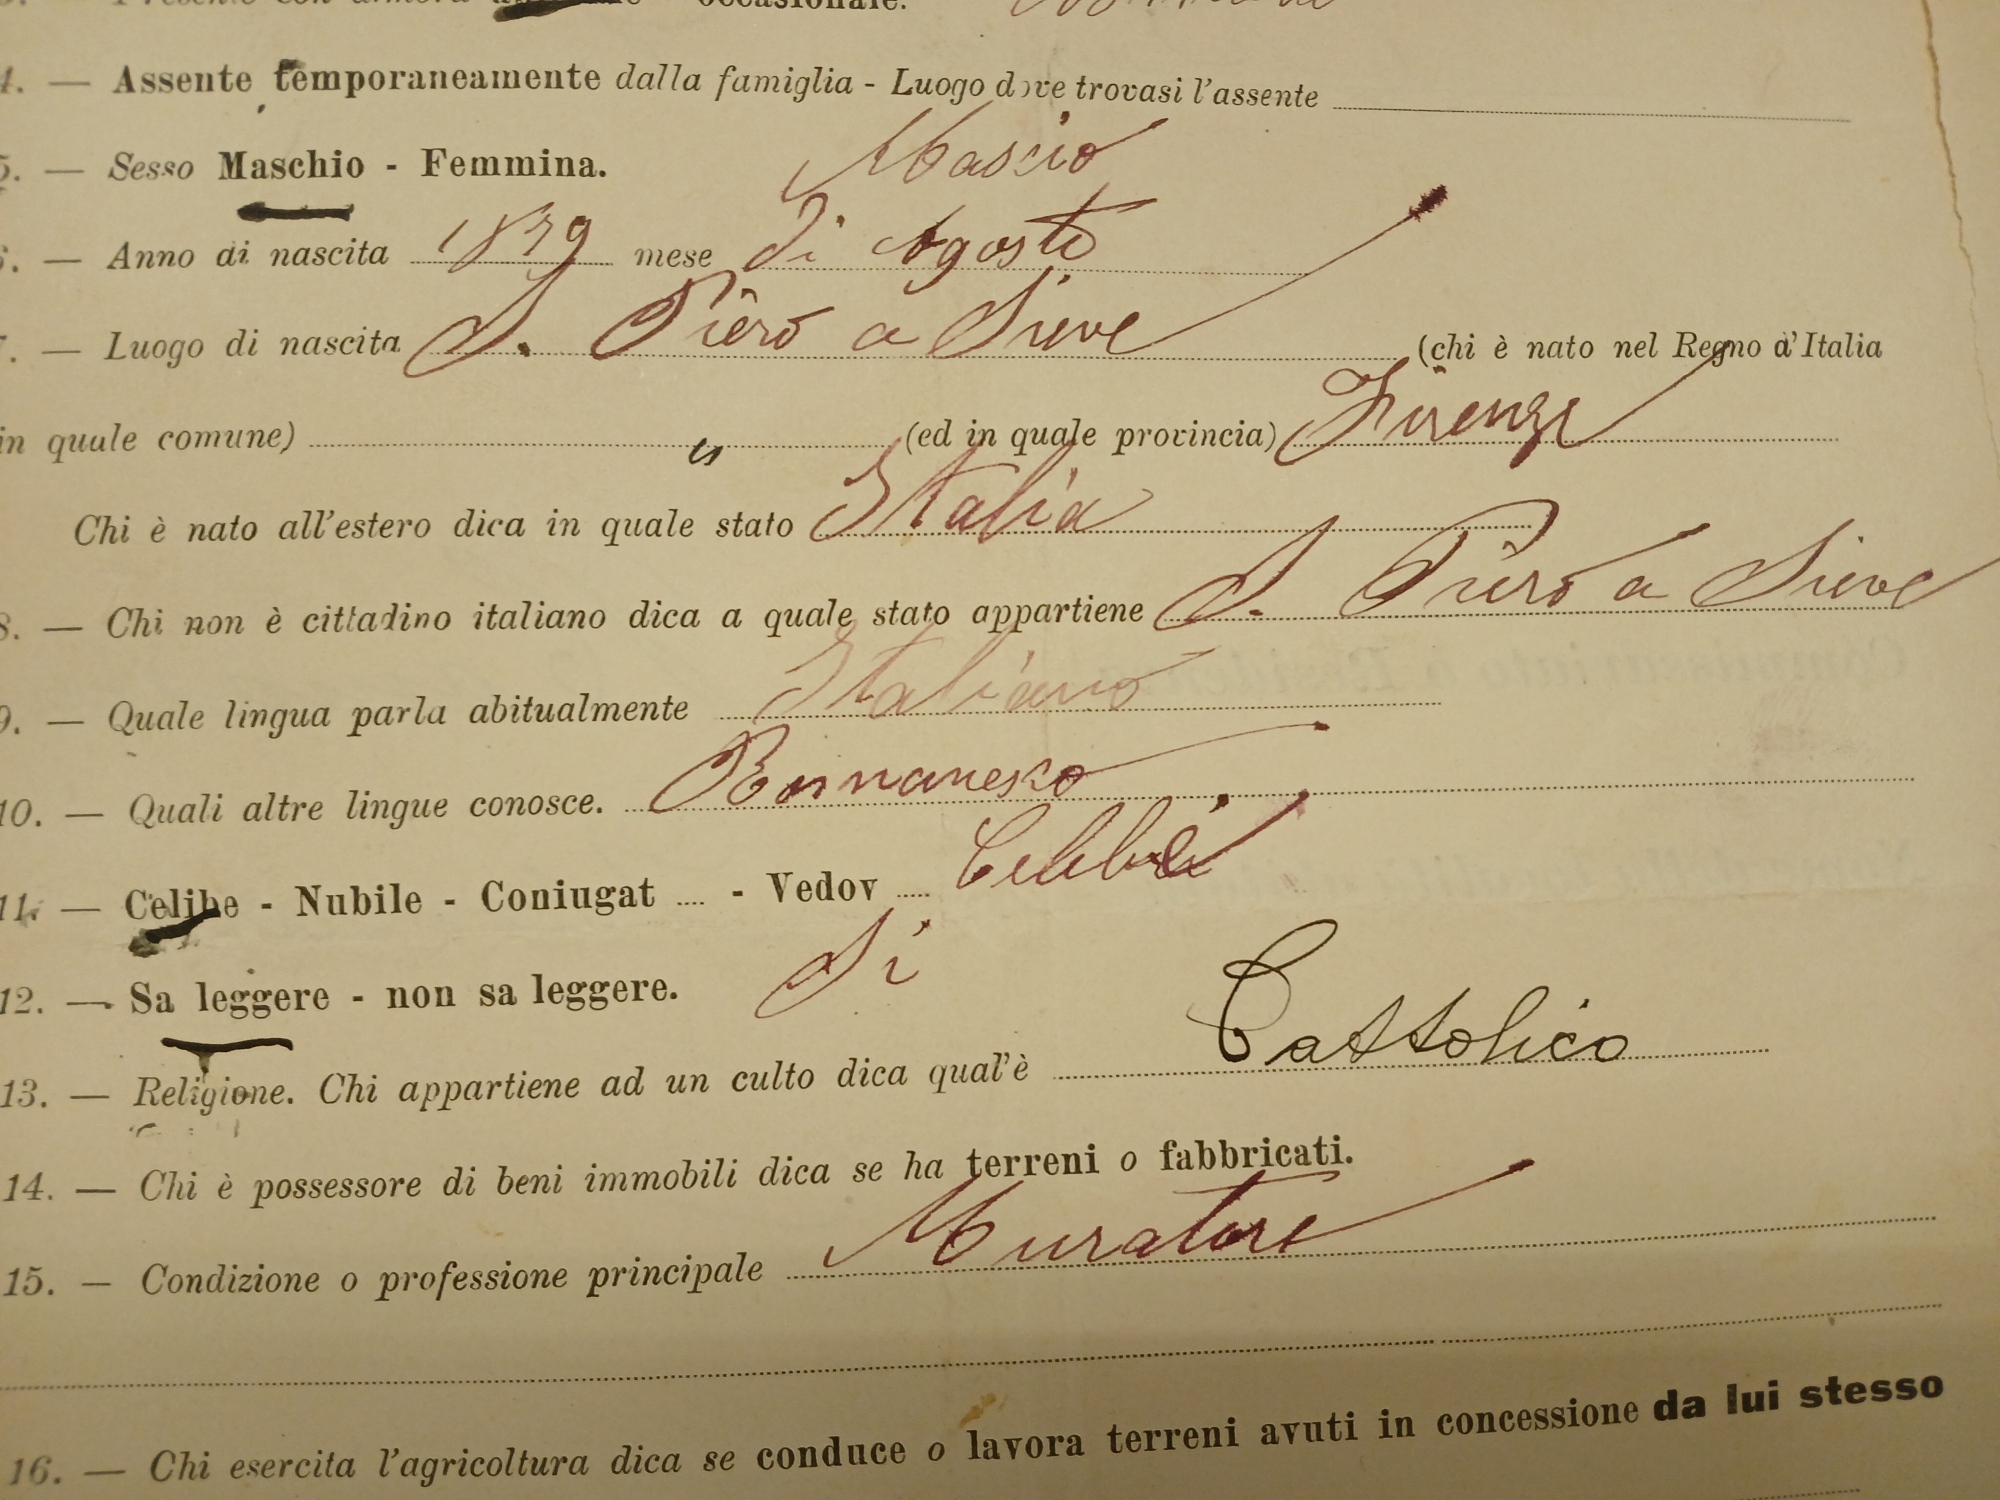 occasionale.
4. — Assente temporaneamente dalla famiglia - Luogo dove trovasi l'assente
5. — Sesso Maschio - Femmina. Mascio
6. — Anno di nascita 1879 mese di Agosto
7. — Luogo di nascita S. Piero a Sieve (chi è nato nel Regno d'Italia
in quale comune) " (ed in quale provincia) Firenze
Chi è nato all'estero dica in quale stato Italia
8. — Chi non è cittadino italiano dica a quale stato appartiene S. Piero a Sieve
9. — Quale lingua parla abitualmente Italiano
10. — Quali altre lingue conosce.
11. — Celibe - Nubile - Coniugat .... - Vedov ....
12. — Sa leggere - non sa leggere. Si
13. — Religione. Chi appartiene ad un culto dica qual'è Cattolico
14. — Chi è possessore di beni immobili dica se ha terreni o fabbricati.
15. — Condizione o professione principale Muratore
16. — Chi esercita l'agricoltura dica se conduce o lavora terreni avuti in concessione da lui stesso